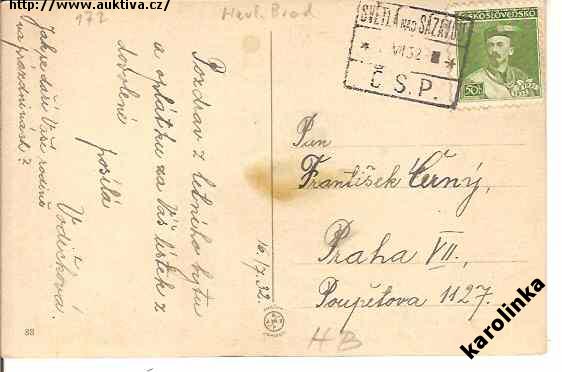 http://www.auktiva.cz/
972
Havl. Brod
SVĚTLÁ NAD SÁZAVOU
* VII 32 *
Č. S. P.
ČESKOSLOVENSKO
50h
Pozdrav z letního bytu
a oplátku za Váš lístek z
dovolené
posílá
Vodičková.
Jak se daří Vaší rodině
na prázdninách?
16/7. 32.
Pan
František Černý,
Praha VII.,
Poupětova 1127.
88
HB
karolinka